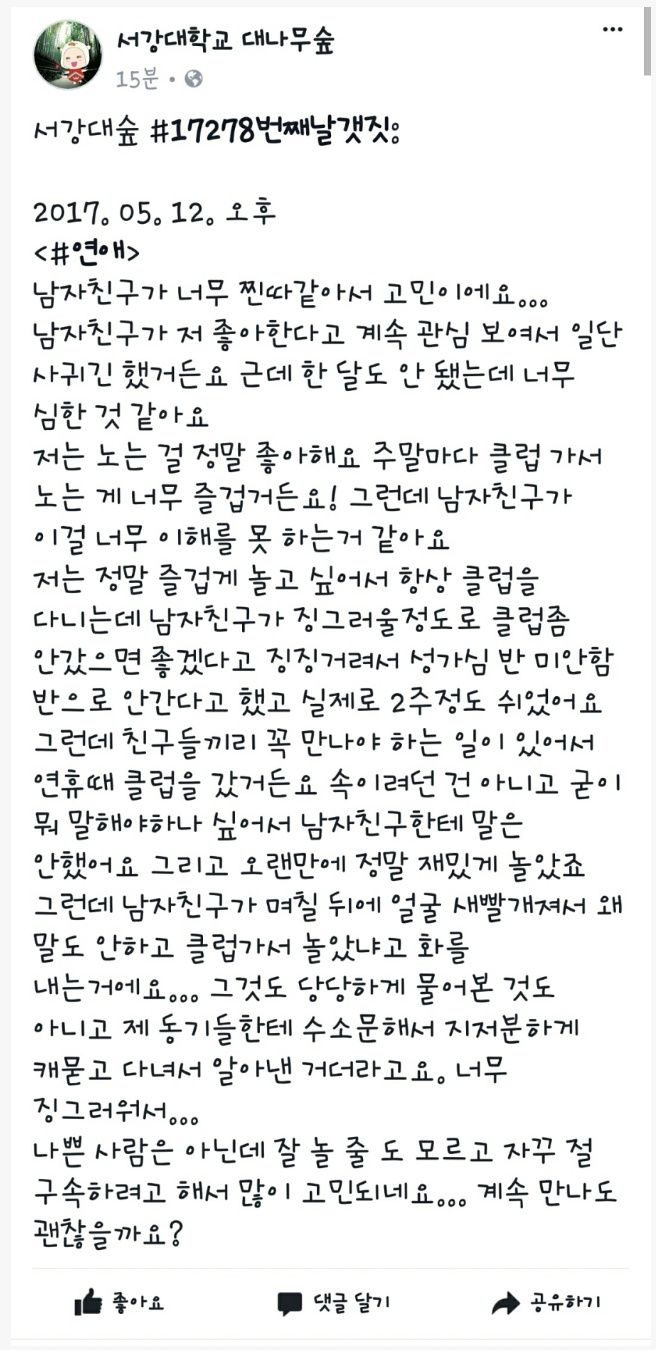 서강대학교 대나무숲
15분
서강대숲 #17278번째날갯짓:
2017. 05. 12. 오후
<#연애>
남자친구가 너무 찐따같아서 고민이에요...
남자친구가 저 좋아한다고 계속 관심 보여서 일단
사귀긴 했거든요 근데 한 달도 안 됐는데 너무
심한 것 같아요
저는 노는 걸 정말 좋아해요 주말마다 클럽 가서
노는 게 너무 즐겁거든요! 그런데 남자친구가
이걸 너무 이해를 못 하는거 같아요
저는 정말 즐겁게 놀고 싶어서 항상 클럽을
다니는데 남자친구가 징그러울정도로 클럽좀
안갔으면 좋겠다고 징징거려서 성가심 반 미안함
반으로 안간다고 했고 실제로 2주정도 쉬었어요
그런데 친구들끼리 꼭 만나야 하는 일이 있어서
연휴때 클럽을 갔거든요 속이려던 건 아니고 굳이
뭐 말해야하나 싶어서 남자친구한테 말은
안했어요 그리고 오랜만에 정말 재밌게 놀았죠
그런데 남자친구가 며칠 뒤에 얼굴 새빨개져서 왜
말도 안하고 클럽가서 놀았냐고 화를
내는거에요... 그것도 당당하게 물어본 것도
아니고 제 동기들한테 수소문해서 지저분하게
캐묻고 다녀서 알아낸 거더라고요. 너무
징그러워서...
나쁜 사람은 아닌데 잘 놀 줄 도 모르고 자꾸 절
구속하려고 해서 많이 고민되네요... 계속 만나도
괜찮을까요?
좋아요 댓글 달기 공유하기